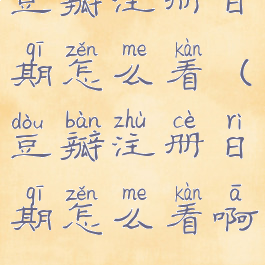 豆瓣注册日
qī zěn me kàn
期怎么看(
dòu bàn zhù cè rì
豆瓣注册日
qī zěn me kàn ā
期怎么看啊